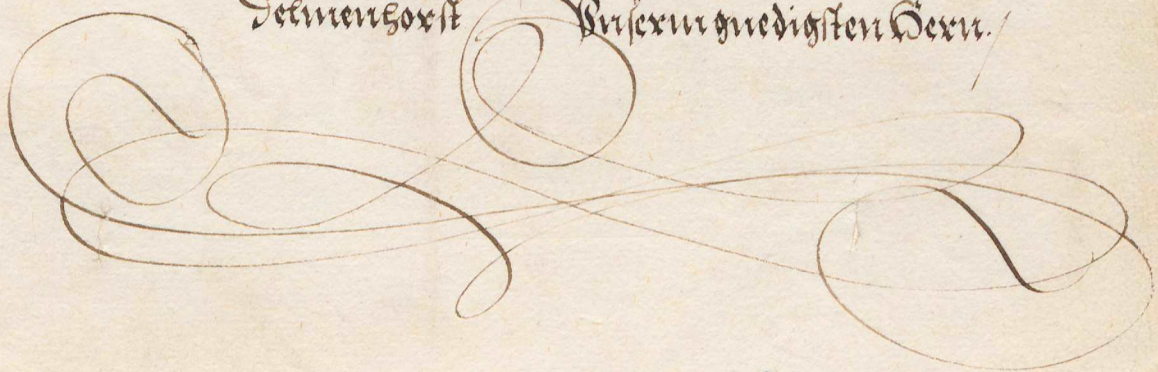 Delmenhorst Vnserm gnedigsten Hern.